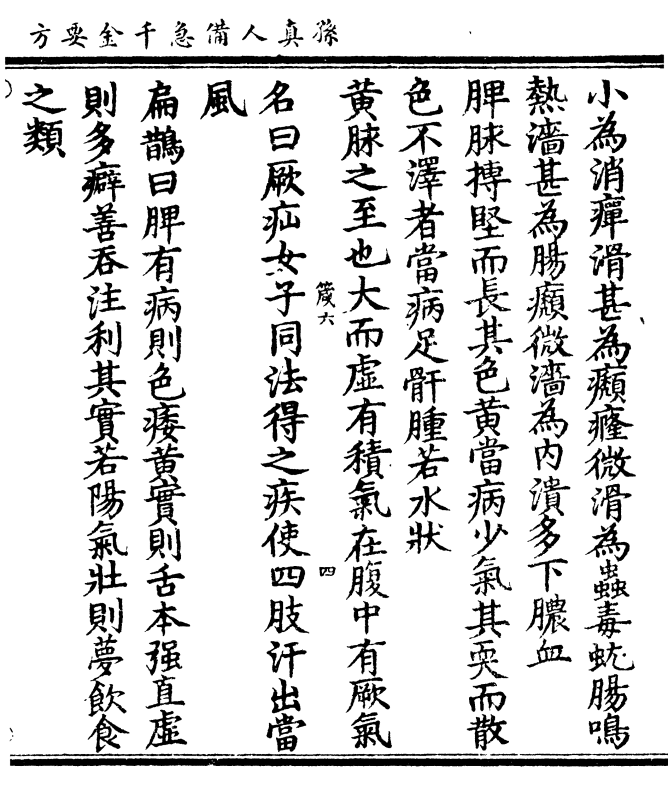 孫真人備急千金要方
小為消癉滑甚為㿗癃微滑為蟲毒蚘腸鳴
熱濇甚為腸㿗微濇為內潰多下膿血
脾脉摶堅而長其色黃當病少氣其耎而散
色不澤者當病足骭腫若水狀
黃脉之至也大而虛有積氣在腹中有厥氣
名曰厥疝女子同法得之疾使四肢汗出當
風
扁鵲曰脾有病則色痿黃實則舌本强直虛
則多癖善吞注利其實若陽氣壯則夢飲食
之類
箴六
四